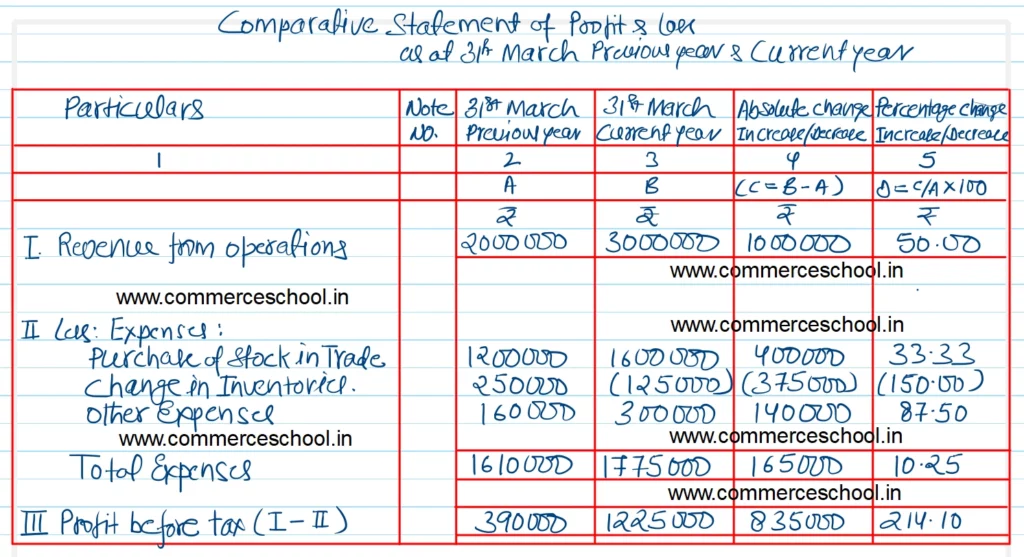 Comparative Statement of Profit & loss
as at 31st March Previous year & Current year
Particulars Note No. 31st March Previous year 31st March Current year Absolute change Increase/Decrease Percentage change Increase/Decrease
1 2 3 4 5
A B (C = B - A) D = C/A X 100
₹ ₹ ₹ ₹
I. Revenue from operations 2000000 3000000 1000000 50.00
www.commerceschool.in
www.commerceschool.in
II Less: Expenses: www.commerceschool.in
Purchase of Stock in Trade 1200000 1600000 400000 33.33
Change in Inventories. 250000 (125000) (375000) (150.00)
Other Expenses 160000 300000 140000 87.50
www.commerceschool.in www.commerceschool.in
Total Expenses 1610000 1775000 165000 10.25
www.commerceschool.in
III Profit before tax (I - II) 390000 1225000 835000 214.10